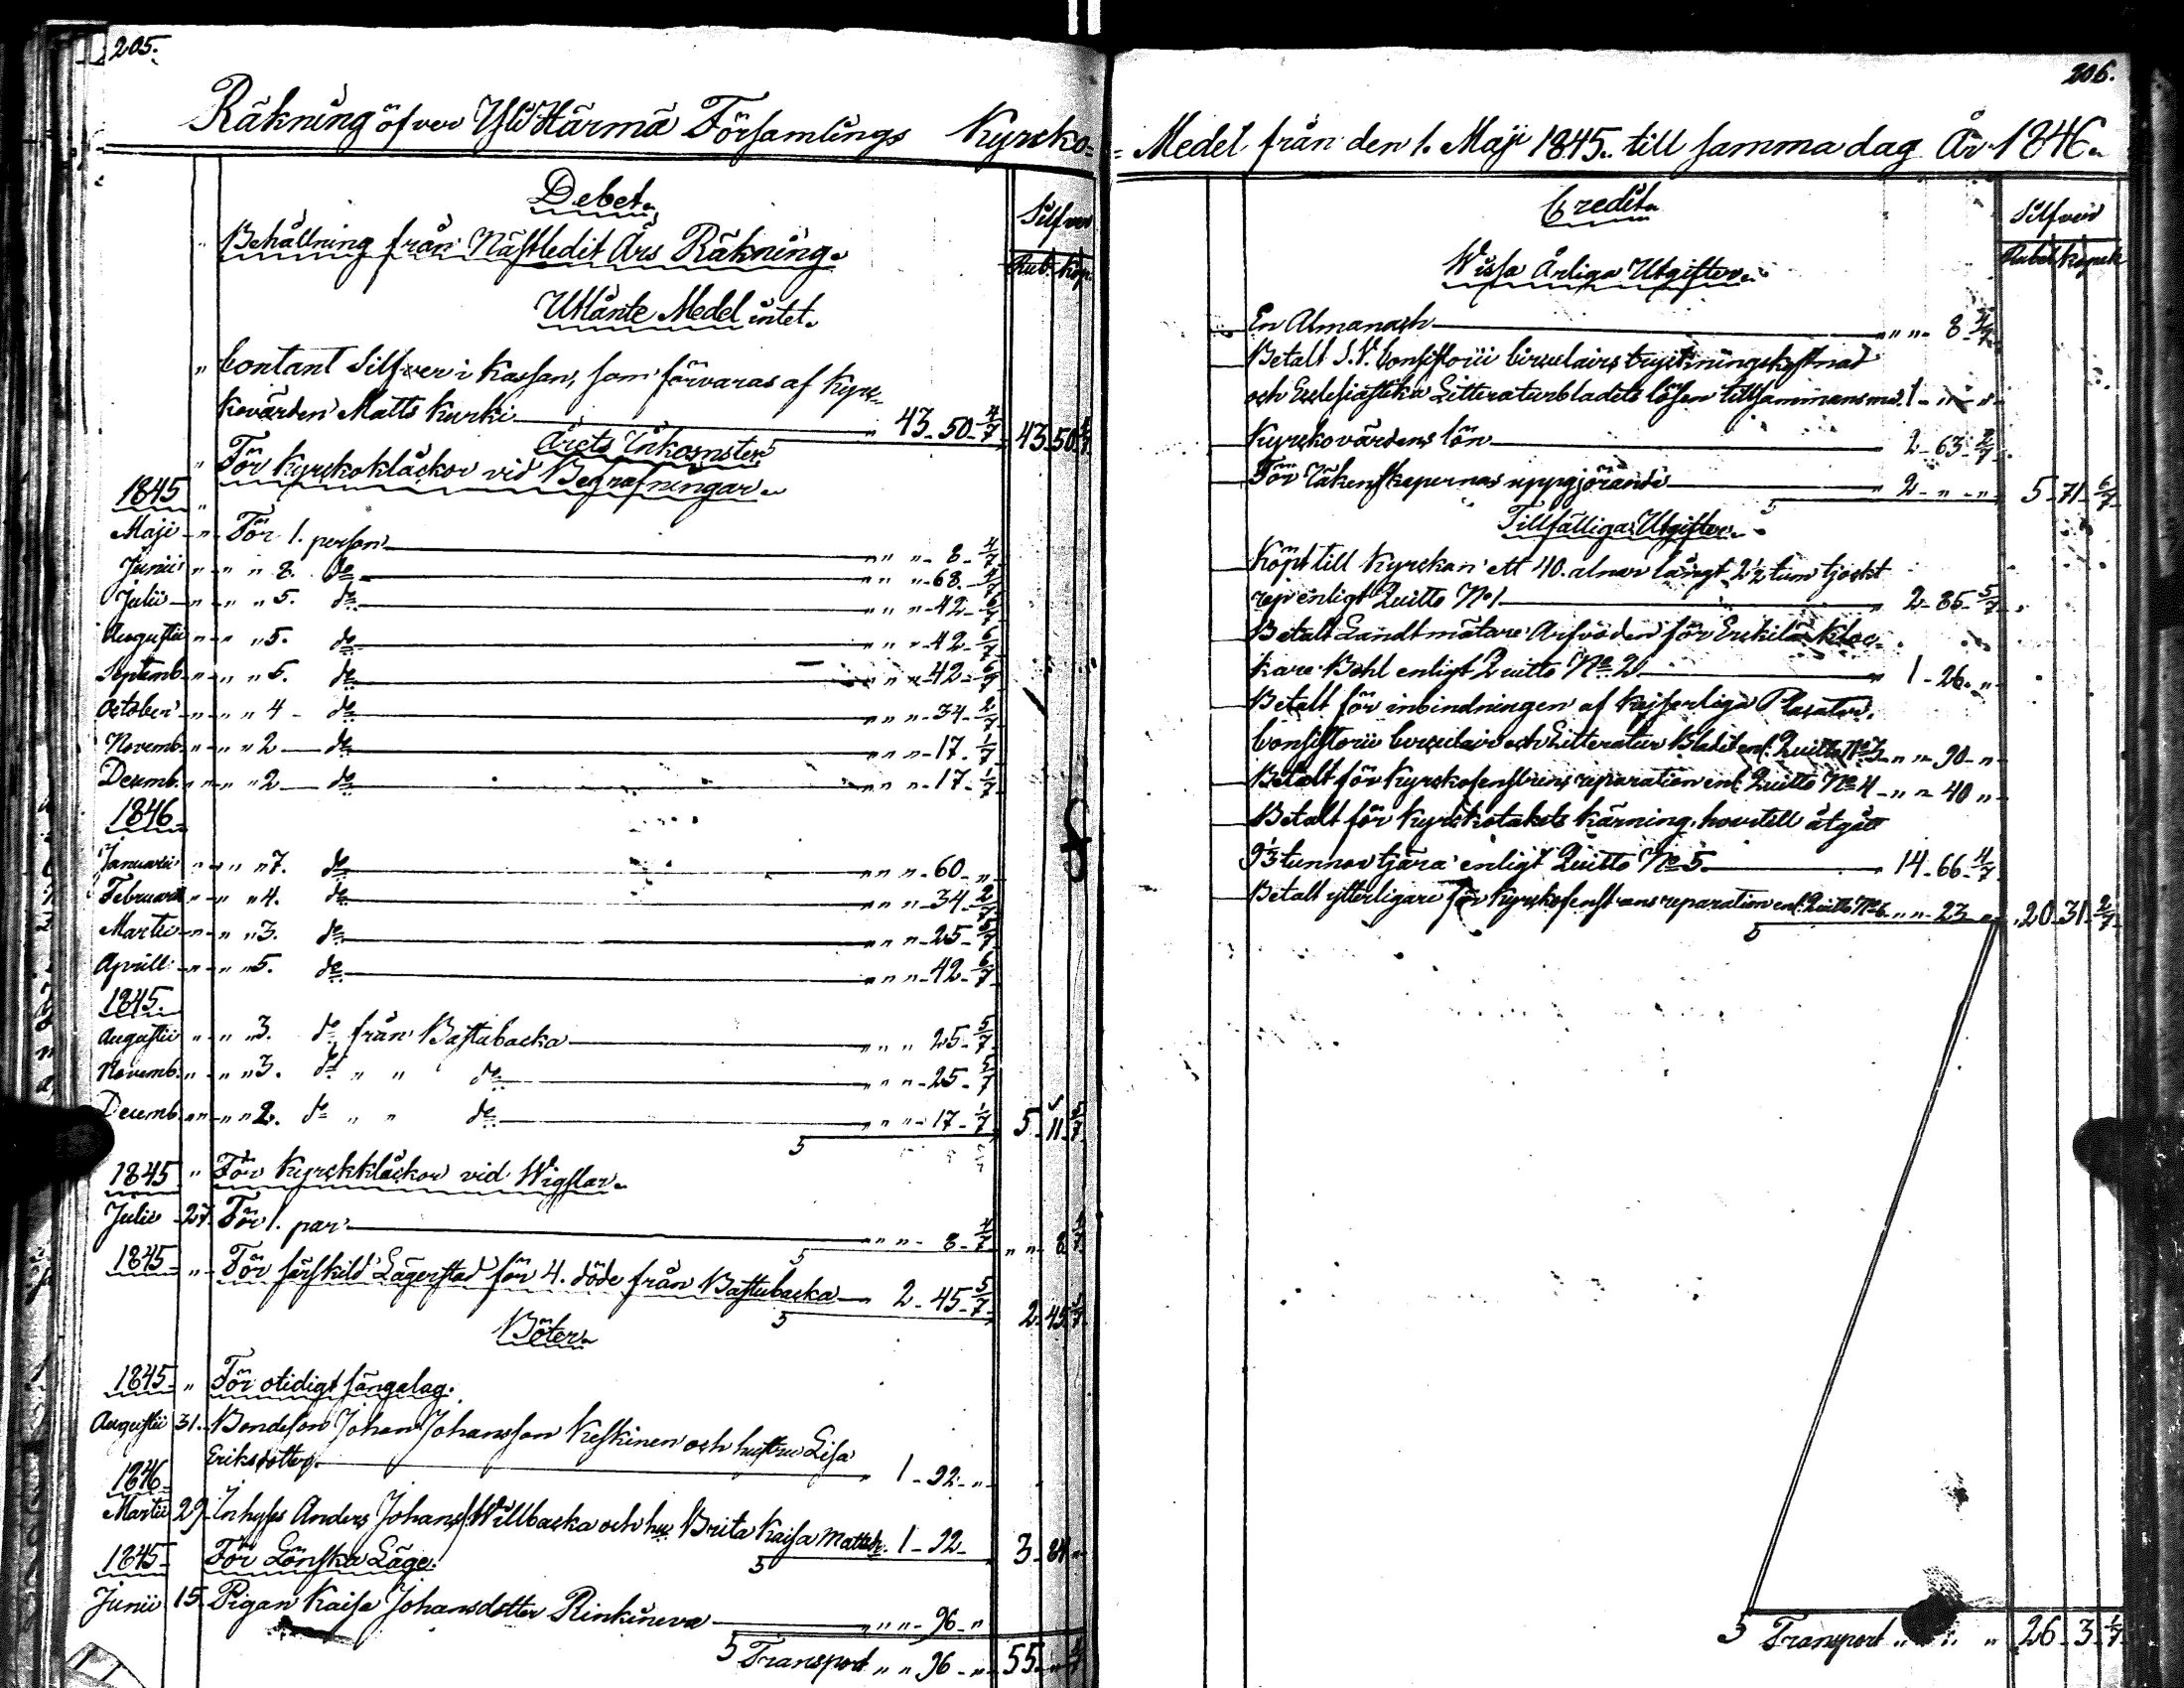 205.
Räkning öfver Ylihärmä Församlings Kyrcko=
Debet.
Silfver
Behållning från Nästledit Års Räkning.
Rub. Kop.
Utlånte Medel intet.
" Contant Silfver i Kassan, som förvaras af Kyrc-
kovärden Matts Kurki " 43-50-4/7 43 50 4/7
Årets Inkomster
" För Kyrckoklåckor vid Begrafningar.
1845 "
Maji " För 1. person " " " 8-4/7
Junii " " " 8. do " " " 68-4/7
Julii " " " 5. do " " " 42-6/7
Augustii " " " 5. do " " " 42-6/7
Septemb. " " " 5. do " " " 42-6/7
October " " " 4 - do " " " 34-2/7
Novemb. " " " 2 do " " " 17-1/7
Decemb. " " " 2 do " " " 17-1/7
1846
Januarii " " " 7. do " " " 60 "
Februarii " " " 4. do " " " 34-2/7
Martii " " " 3. do " " " 25-5/7
Aprill " " " 5. do " " " 42-6/7
1845.
Augustii " " " 3. do från Bastubacka " " " 25-5/7
Novemb. " " " 3. do " " do " " " 25-5/7
Decemb. " " " 2. do " " do " " " 17-1/7 5 11 5/7
1845 " För Kyrckklåckor vid Wigslar.
Julii 27. För 1. par " " " 8-4/7 " " 8 4/7
1845 " För särskild Lägerstad för 4. döde från Bastubacka 2-45-5/7 2 45 5/7
Böter
1845 " För otidigt sängalag.
Augustii 31. Bondeson Johan Johansson Keskinen och hustru Lisa
Eriksdotter " 1-92-"
1846
Martii 29 Inhyses Anders Johanss. Willbacka och hu Brita Kaisa Mattsdr. 1-92- 3-84 "
1845 För Lönska Läge.
Junii 15. Pigan Kaisa Johansdotter Rinkineva " " " 96 "
Transport " " 96 " 55 " 4/7
206.
= Medel från den 1. Maji 1845. till samma dag År 1846.
Credit.
Silfver
Rubel Kopek
Wissa Årliga Utgifter.
En Almanach " " 8 4/7
Betalt S. V. Consistorii Circulairs tryckningskostnad
och Ecclesiastika Litteraturbladets lösen tillsammans med 1 - " - "
Kyrckovärdens lön 2-63-2/7
För räkenskapernas uppgjörande " 2 - " - " 5-71-6/7
Tillfälliga Utgifter.
Köpt till Kyrckan ett 40. alnar långt 2 1/2 tum tjockt
rep enligt Quitto No 1 " 2-85-5/7
Betalt Landtmätare Arfvoden för Enskilda Kloc-
kare Bohl enligt Quitto No 2 " 1-26-"
Betalt för inbindningen af Kejserliga Placater,
Consistorii Circulair och Litteratur Bladet enl. Quitto No 3 " " 90 - "
Betalt för Kyrckofenstrens reparation enl. Quitto No 4 - " " 40 "
Betalt för Kyrckotakets tjärning, hvartill åtgått
9 1/3 tunnor tjära enligt Quitto No 5. 14-66-4/7
Betalt ytterligare för Kyrckofenstrens reparation enl. Quitto No 6 " " 23 " 20-31-2/7
Transport " " " 26-3-1/7